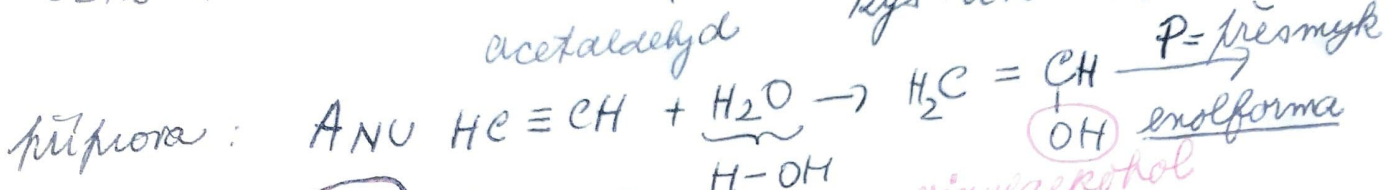 acetaldehyd
P= přesmyk
příprava : ANU HC ≡ CH + H2O → H2C = CH →
OH enolforma
H-OH
vinylalkohol